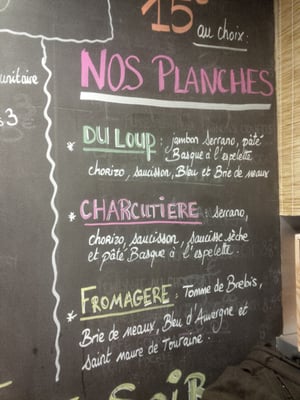 15
au choix:
unitaire
3
NOS PLANCHES
* DU LOUP : jambon serrano, pâté
Basque à l'espelette
chorizo, saucisson, Bleu et Brie de meaux
* CHARCUTIÈRE : serrano,
chorizo, saucisson, saucisse sèche
et pâté Basque à l'espelette.
* FROMAGERE : Tomme de Brebis,
Brie de meaux, Bleu d'Auvergne et
saint maure de Touraine.
SOIR